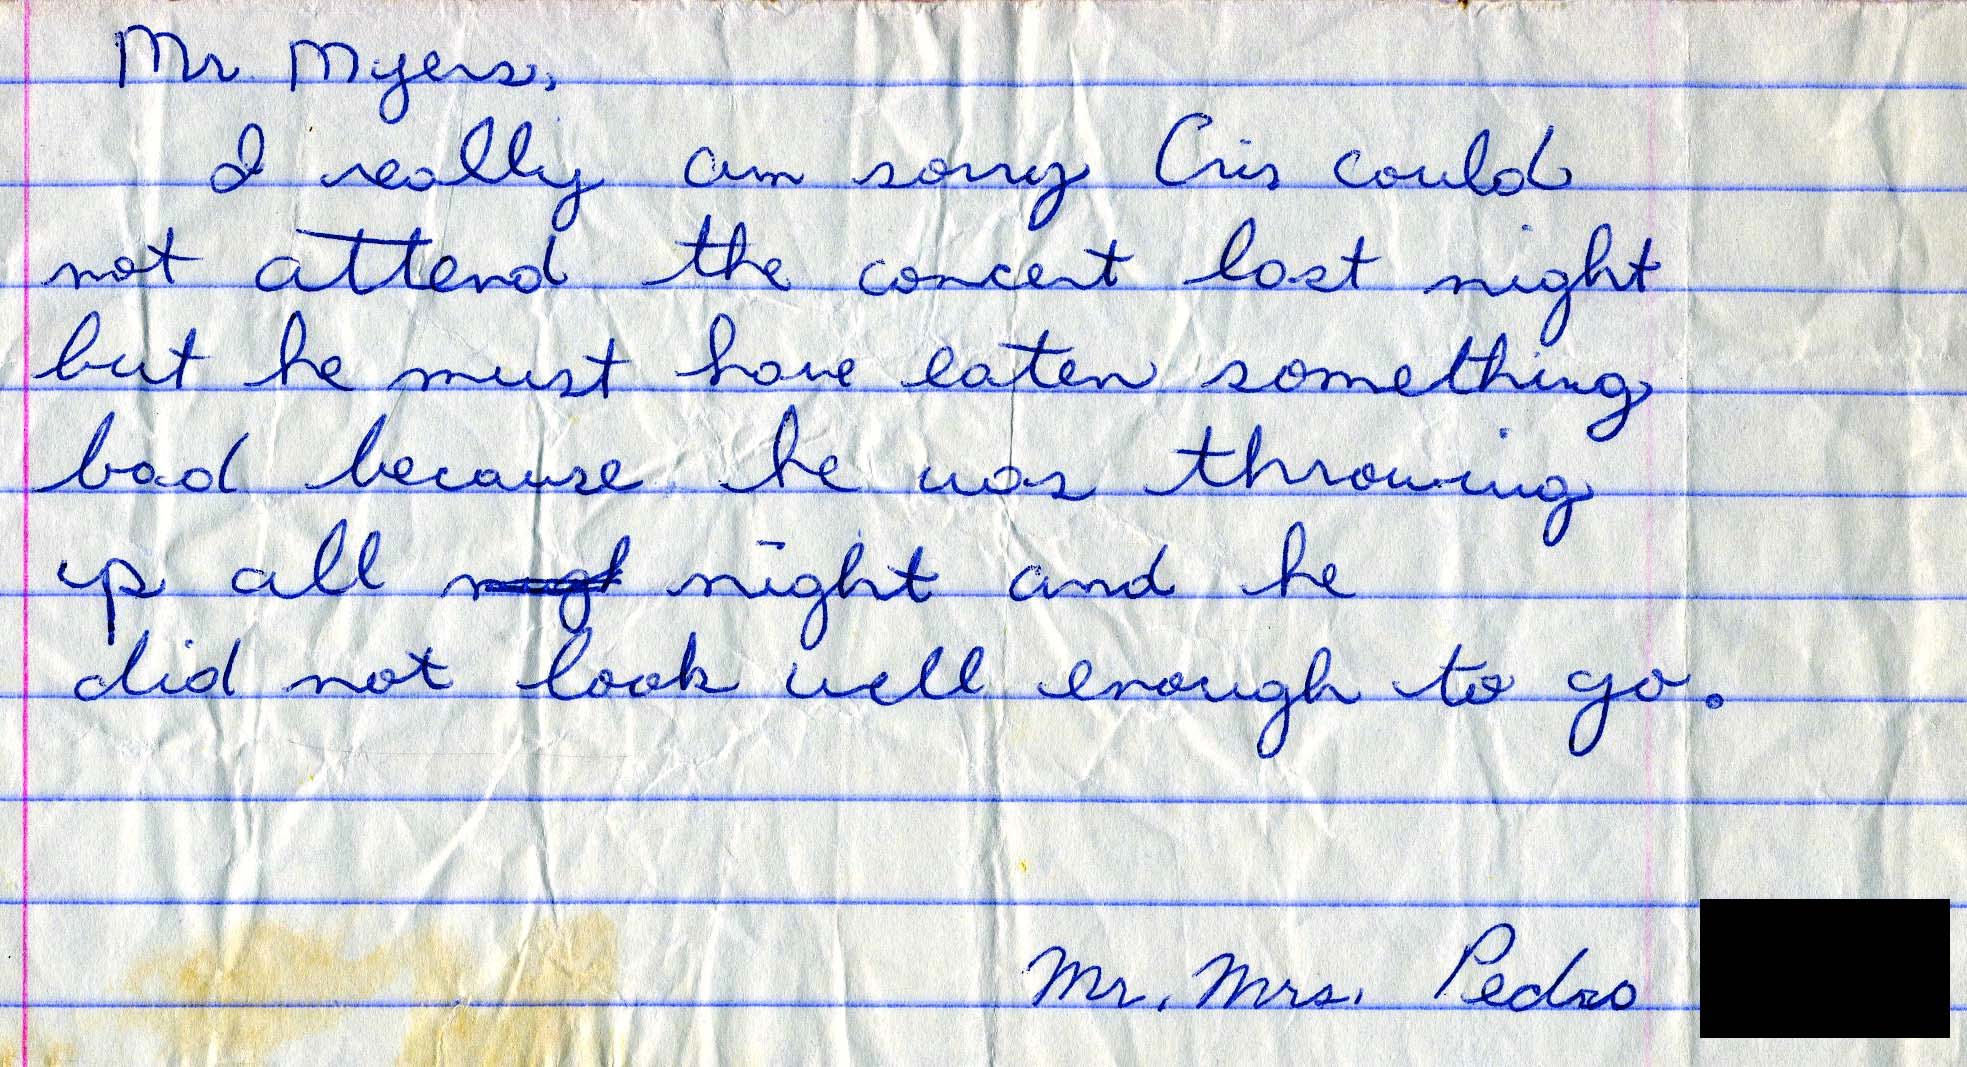 Mr. Myers,
I really am sorry Cris could
not attend the concert last night
but he must have eaten something
bad because he was throwing
up all night and he
did not look well enough to go.
Mr. Mrs. Pedro